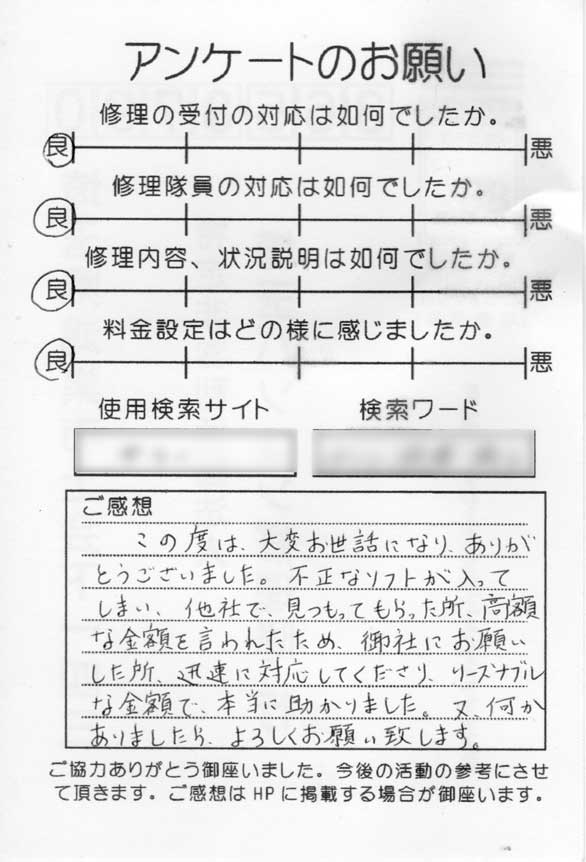 アンケートのお願い
修理の受付の対応は如何でしたか。
良 悪
修理隊員の対応は如何でしたか。
良 悪
修理内容、状況説明は如何でしたか。
良 悪
料金設定はどの様に感じましたか。
良 悪
使用検索サイト 検索ワード
ご感想
この度は、大変お世話になり、ありが
とうございました。不正なソフトが入って
しまい、他社で、見つもってもらった所、高額
な金額を言われたため、御社にお願い
した所、迅速に対応してくださり、リーズナブル
な金額で、本当に助かりました。又、何か
ありましたら、よろしくお願い致します。
ご協力ありがとう御座いました。今後の活動の参考にさせ
て頂きます。ご感想はHPに掲載する場合が御座います。